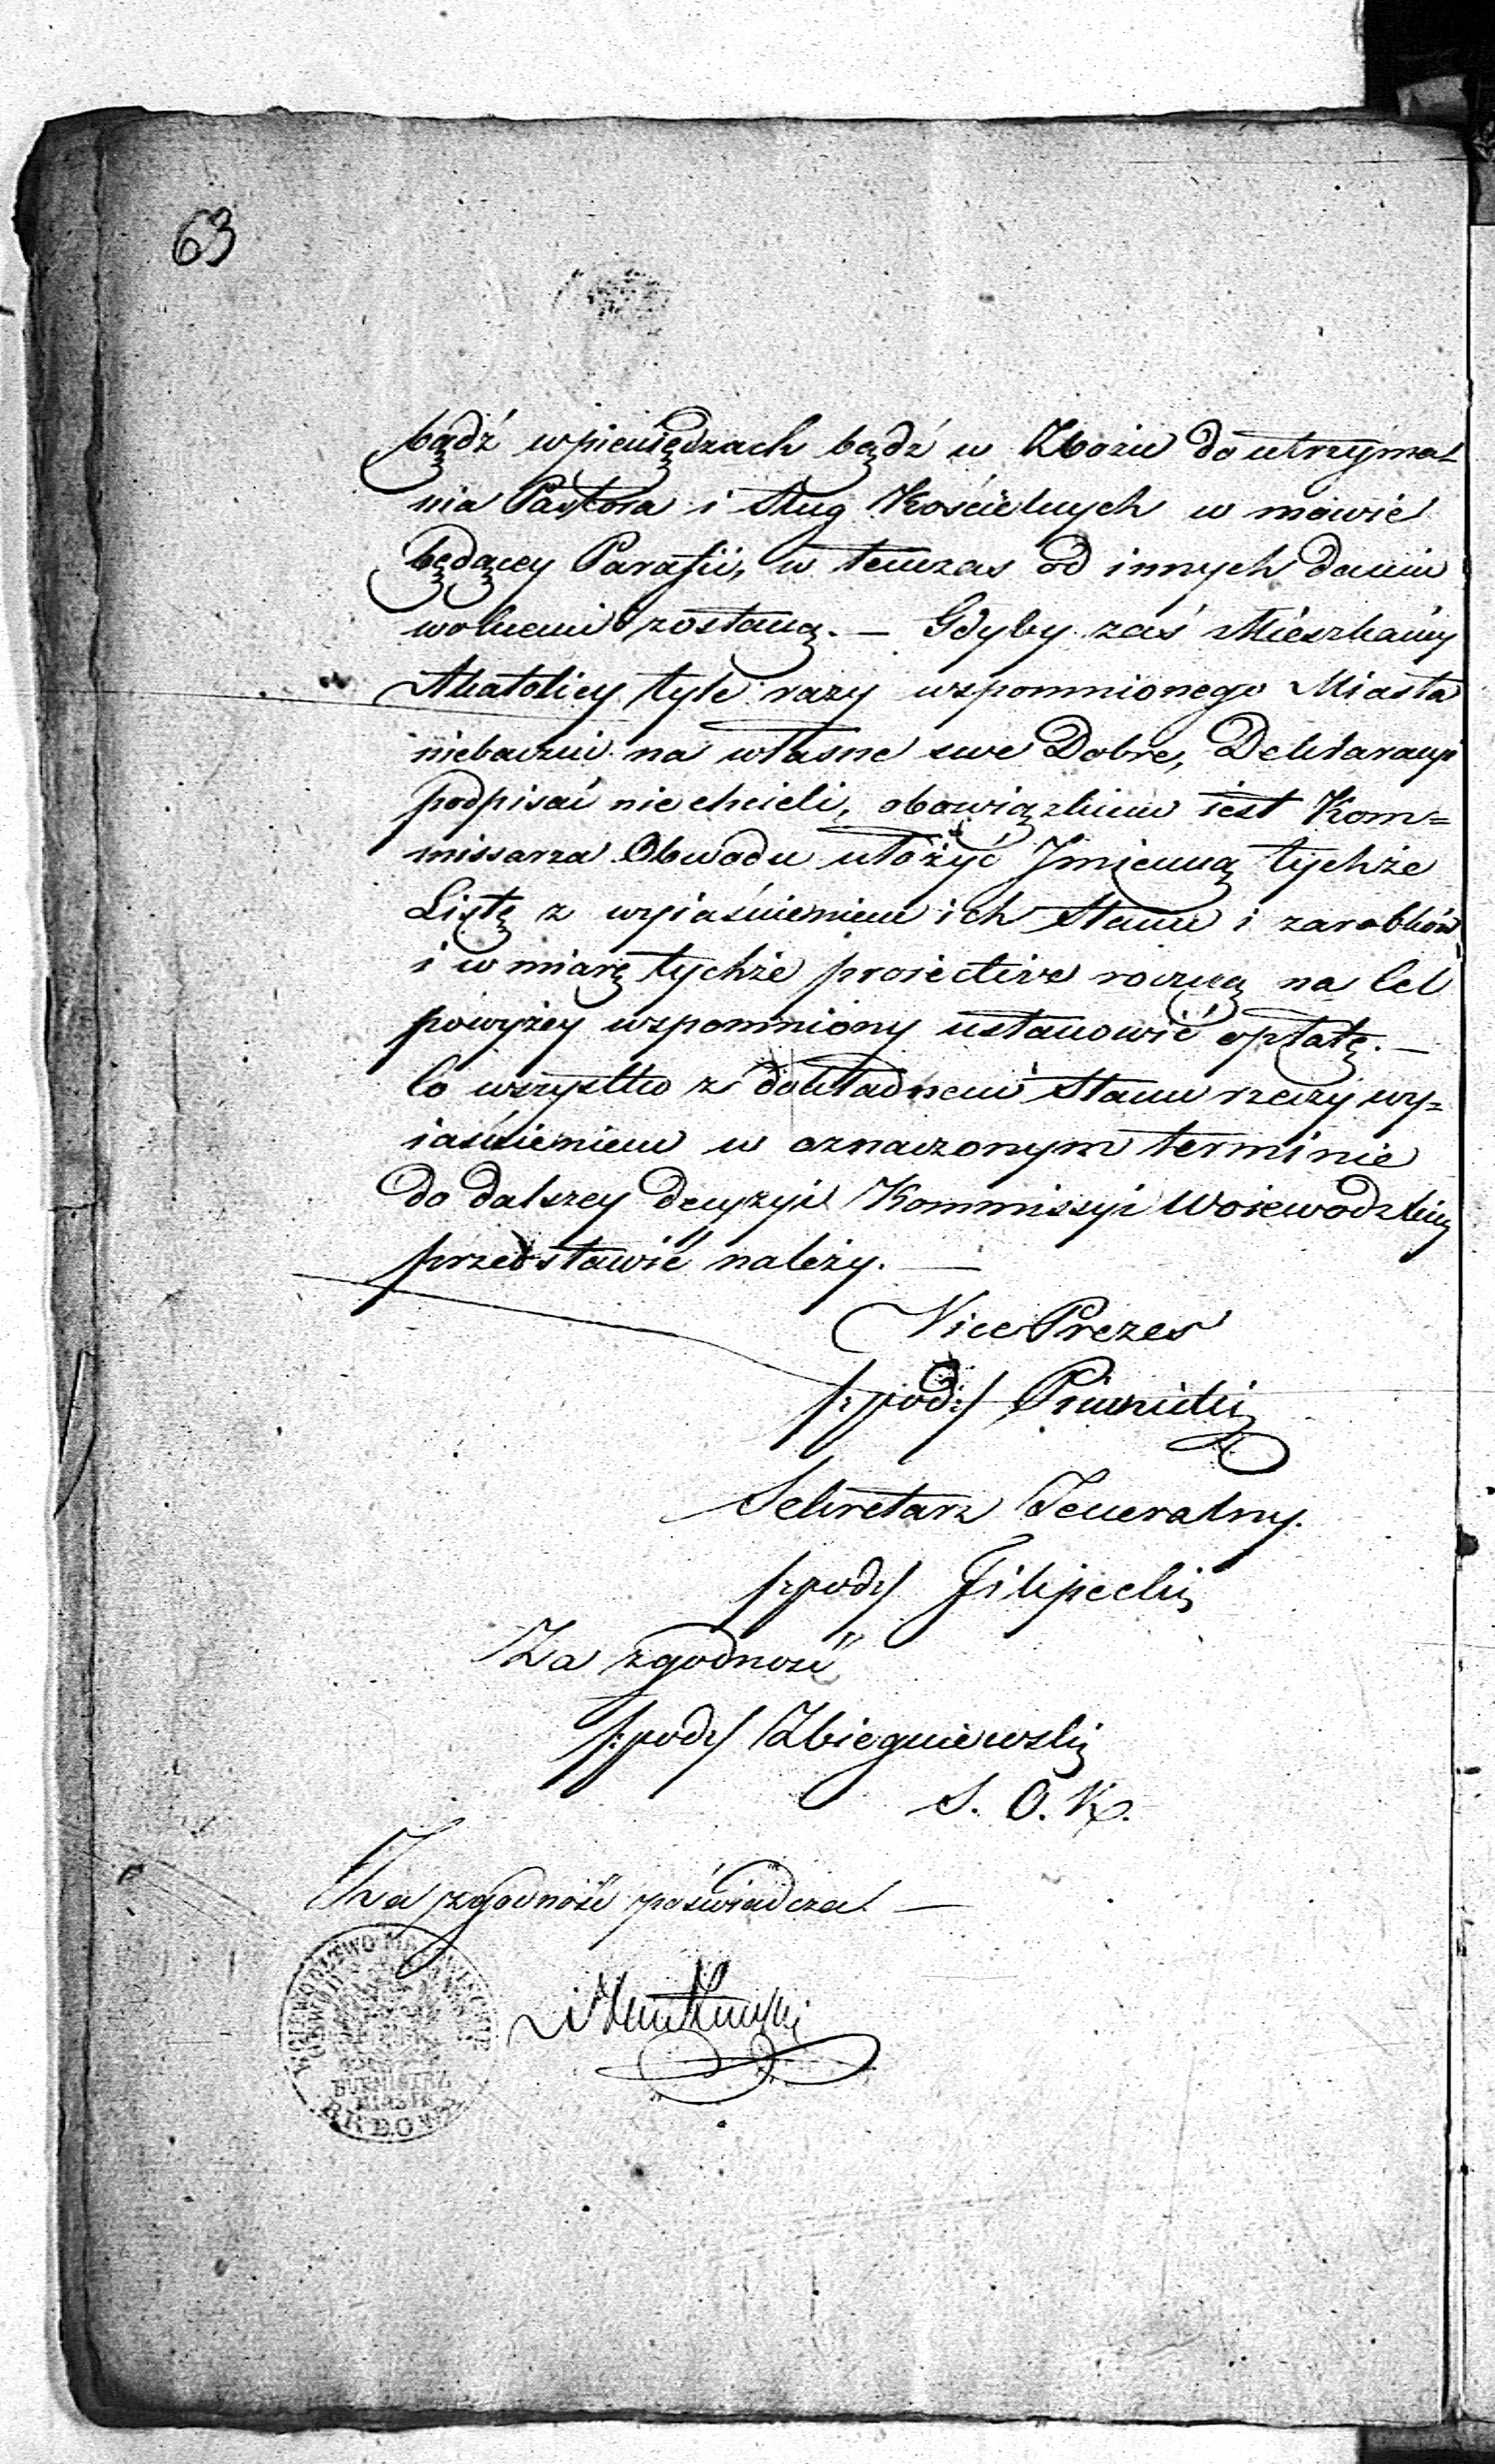 63
bądź w pieniędzach bądź w Zbożu do utrzyma=
nia Pastora i sług Kościelnych w mowie
będącey Parafii, w tenczas od innych danin
wolnemi zostaną. — Gdyby zaś Mieszkańcy
Akatolicy tyle razy wspomnionego Miasta
niebaczni na własne swe Dobro, Deklaracyi
podpisać niechcieli, obowiązkiem iest Kom=
missarza Obwodu ułożyć Jmienną tychże
Listę z wyiaśnieniem ich Stanu i zarobków
i w miarę tychże proiective roczną na Cel
powyżey wspomniony ustanowić opłatę. —
Co wszystko z dokładnem Stanu rzeczy wy=
iaśnieniem w oznaczonym terminie
do dalszey decyzyi Kommissyi Woiewódzkiey
przedstawić należy. —
Vice Prezes
/:pod:/ Piwnicki
Sekretarz Jeneralny.
/:pod:/ Filipecki
Za zgodność
/:pod:/ Zbiegniewski
S. O. K.
Za zgodność poświadcza —
WOIEWODZTWO MAZOWIECKIE
OBWOD
BURMISTRZ
MIASTA